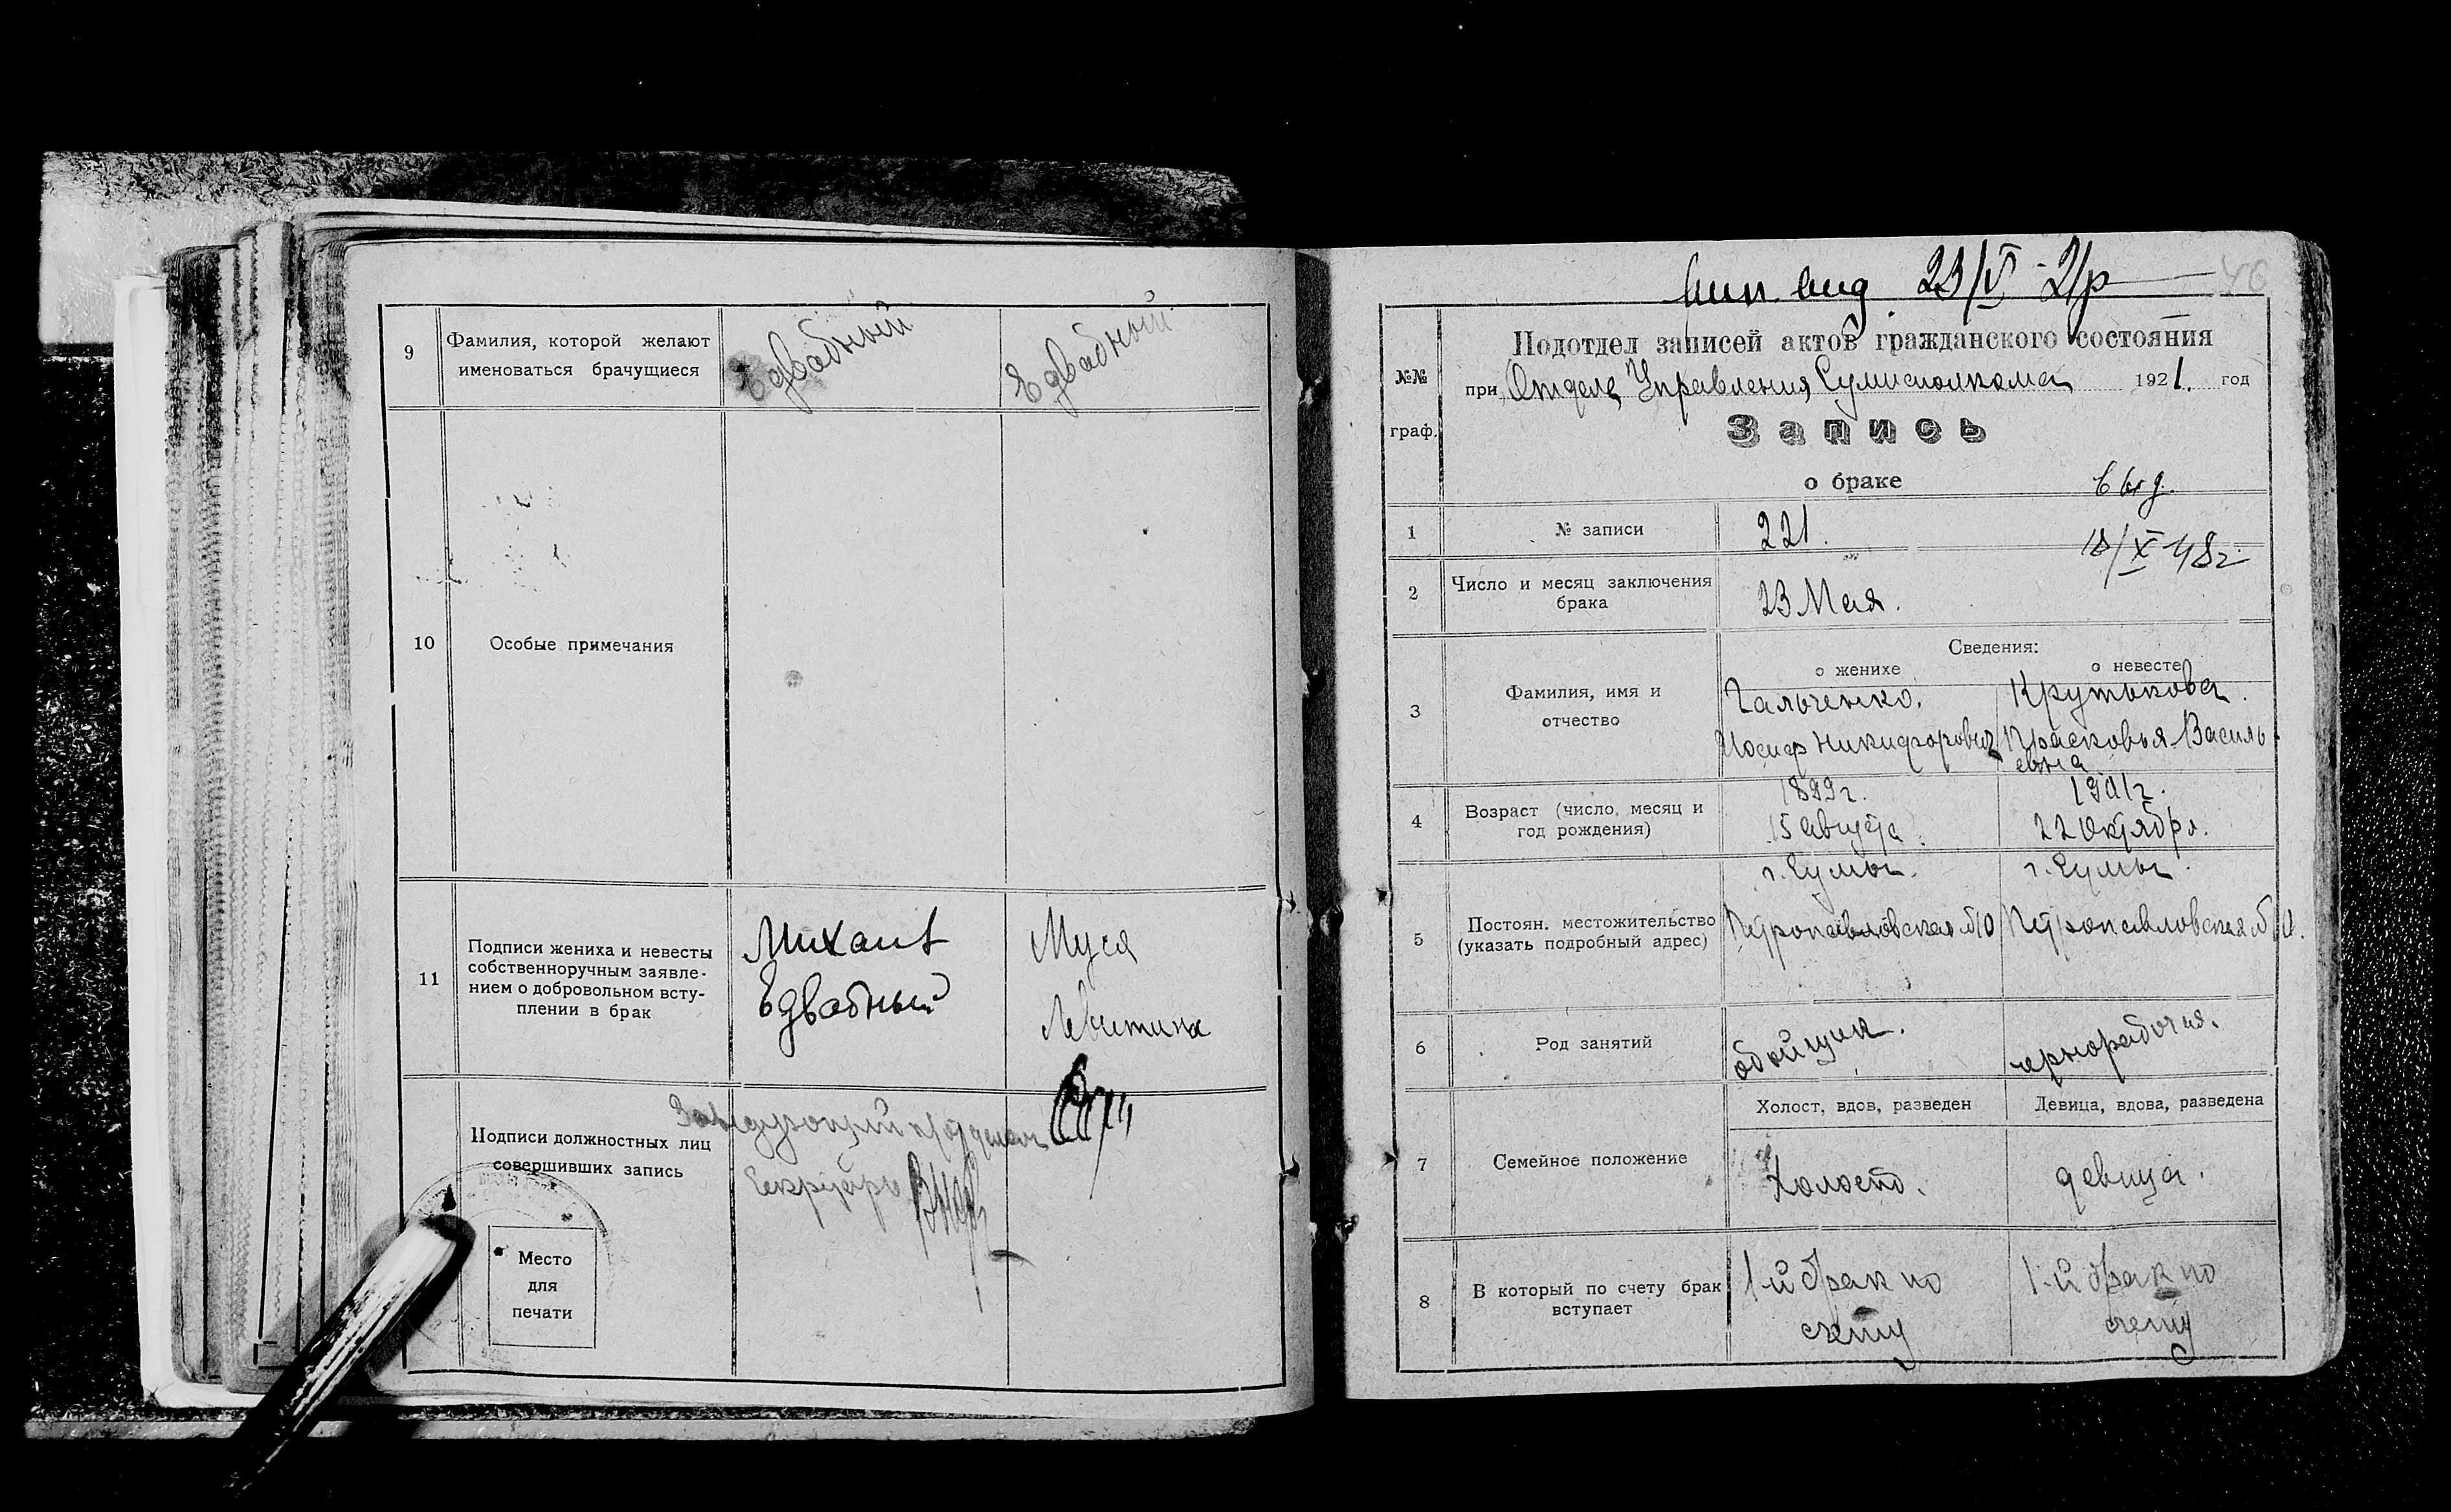 9
Фамилия, которой желают
именоваться брачущиеся
Едвабный
Едвабный
10
Особые примечания
11
Подписи жениха и невесты
собственноручным заявле-
нием о добровольном всту-
плении в брак
Михаил
Едвабный
Муся
Левитина
Подписи должностных лиц
совершивших запись
Заведующий
Секретарь
Место
для
печати
23/V 21р
46
№№
граф.
Подотдел записей актов гражданского состояния
при Отделе Управления Сумисполкома 1921. год
Запись
о браке
выд.
18/X 48г
1
№ записи
221.
2
Число и месяц заключения
брака
23 Мая.
3
Фамилия, имя и
отчество
Сведения:
о женихе
о невесте
Гальченко.
Иосиф Никифорович
Крутькова.
Прасковья Василь-
евна
4
Возраст (число, месяц и
год рождения)
1899г.
15 августа.
1901г.
22 Октября.
5
Постоян. местожительство
(указать подробный адрес)
г. Сумы.
Петропавловская №10
г. Сумы.
Петропавловская №10.
6
Род занятий
обойщик.
чернорабочая.
7
Семейное положение
Холост, вдов, разведен
Девица, вдова, разведена
Холост.
девица.
8
В который по счету брак
вступает
1-й брак по
счету
1-й брак по
счету